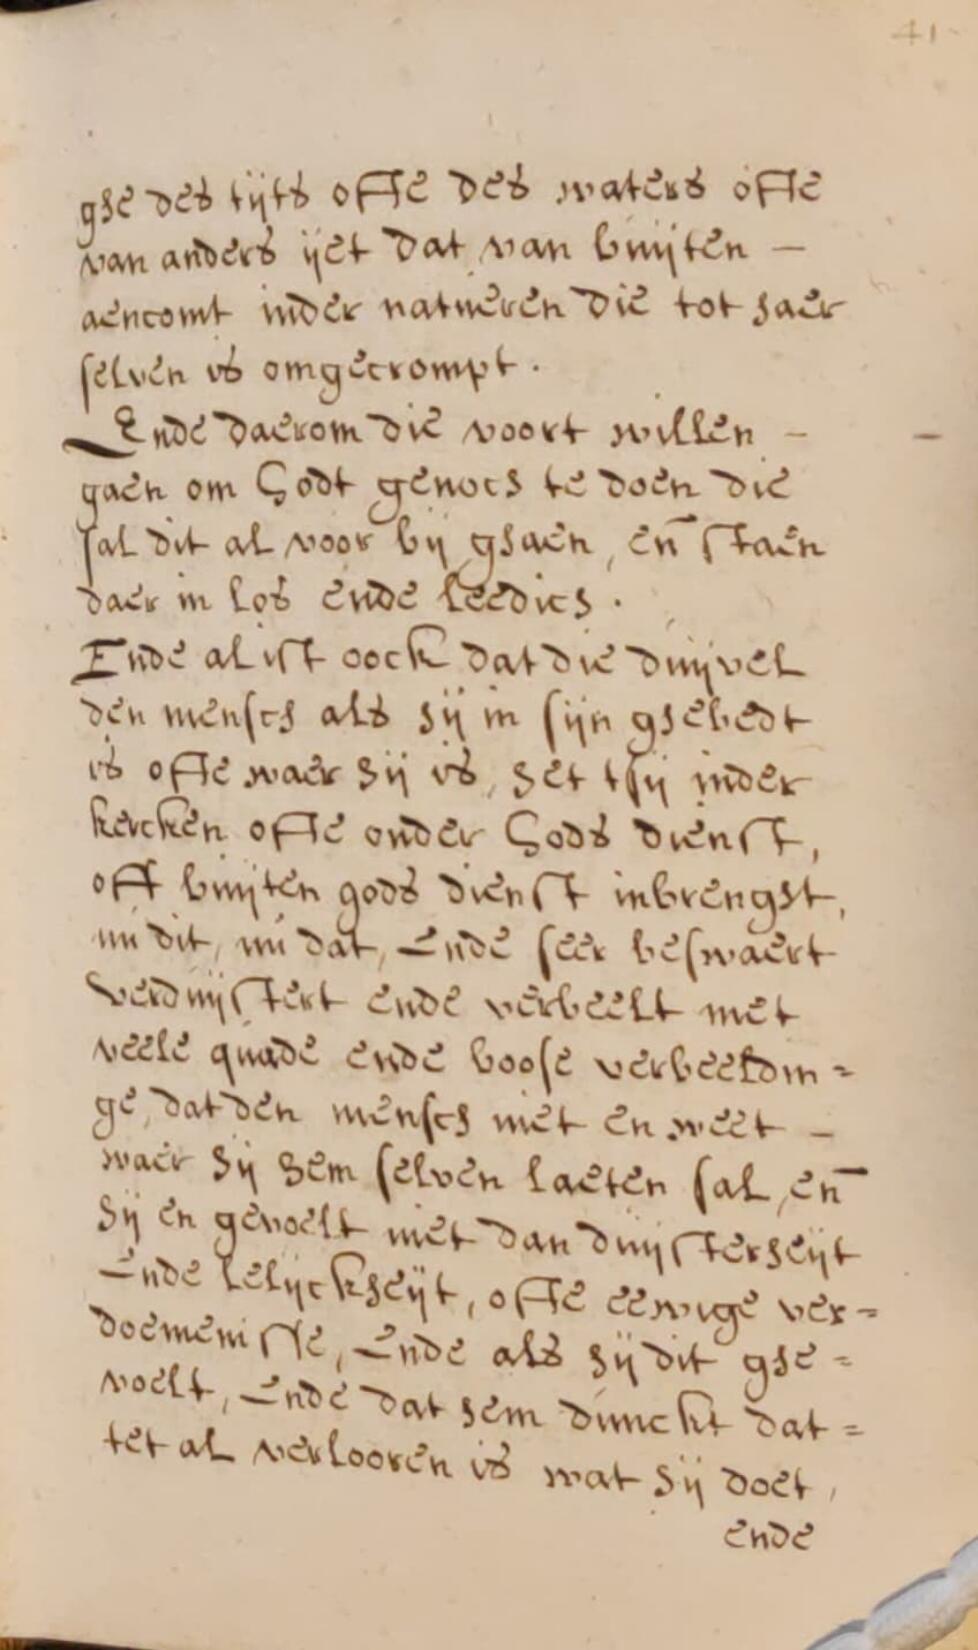 41
ghe des tijts offe des waters offe
van anders ijet dat van buijten –
aencomt inder natueren die tot haer
selven is omgecrompt.
Ende daerom die voort willen –
gaen om Godt genoch te doen die
sal dit al voor bij ghaen, en̄ staen
daer in los ende leedich.
Ende al ist oock dat die duijvel
den mensch als hij in sijn ghebedt
is offe waer hij is, het tsij inder
kercken offe onder Gods dienst,
oft buijten gods dienst inbrenght,
nú dit, nú dat, Ende seer beswaert
verduijstert ende verbeelt met
veele quade ende boose verbeeldin=
ge, dat den mensch niet en weet –
waer hij hem selven laeten sal, en̄
hij en gevoelt niet dan duijsterheijt
Ende lelijckheijt, offe eewige ver=
doemenisse, Ende als hij dit ghe=
voelt, Ende dat hem dúnckt dat=
tet al verlooren is wat hij doet,
ende